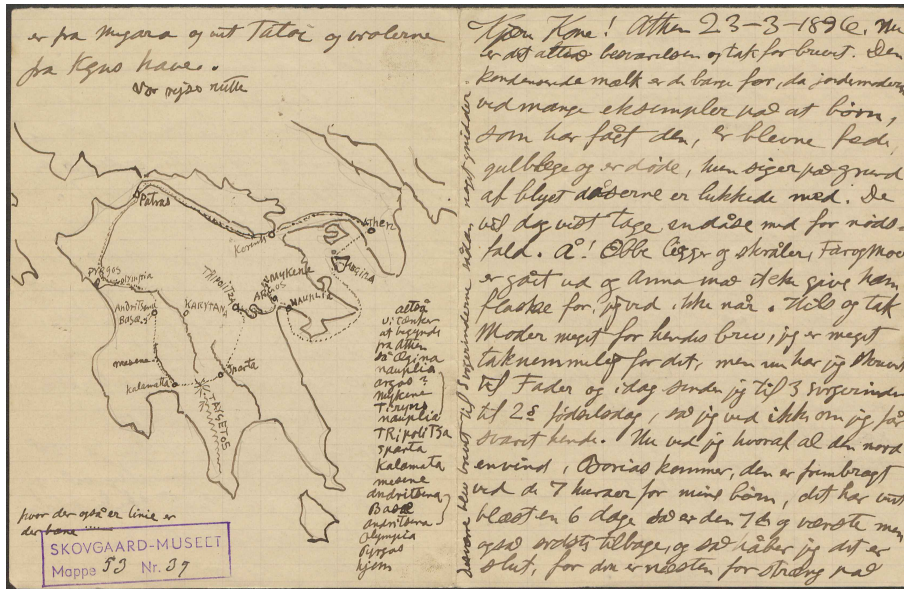 er fra Megara og vit Tatoi og kvalerne
fra Kgns have.
Vor rejse rutte
Patras
Korinth
Athen
Ægina
Pyrgos
Olympia
Andritsena
Basæ
KARYTAN
TRIPOLITZA
MYKENE
ARGOS
NAUPLIA
mesene
Kalamatta
Sparta
TAYGETOS
altså
vi tænker
at begynde
fra Athen
så Ægina
nauplia
argos ?
mykene
Tiryns
nauplia
TRipoliTsa
sparta
Kalamata
mesene
andritsena
Basæ
andritsena
Olympia
Pyrgos
hjem
hvor der også er linie er
der bane
SKOVGAARD-MUSEET
Mappe 53 Nr. 37
desværre blev brevet til Svigerinderne sådan noget gnidder
Kjære Kone! Athen 23-3-1896. Nu
er det atter besvarelsen og tak for brevet. Den
kondenserede mælk er de bange for, da jordemoderen
ved mange eksempler på at børn,
som har fået den, er blevne fede,
gulblege og er døde, hun siger på grund
af blyet dåserne er lukkede med. De
vil dog vist tage en dåse med for nøds-
fald. Å! Ebbe ligger og skråler, Far og Mor
er gået ud og Anna må ikke give ham
flaske før, jeg ved ikke når. Hils og tak
Moder meget for hendes brev, jeg er meget
taknemmelig for det, men nu har jeg skrevet
til Fader og i dag sender jeg til 3 svigerinder
til 2s fødselsdag, så jeg ved ikke om jeg får
svaret hende. Nu ved jeg hvoraf al den nord
envind, Borias kommer, den er frembragt
ved de 7 hurraer for mine børn, det har vist
blæst en 6 dage så er den 7de og værste men
også sidste tilbage, og så håber jeg det er
slut, for den er næsten for stræng på